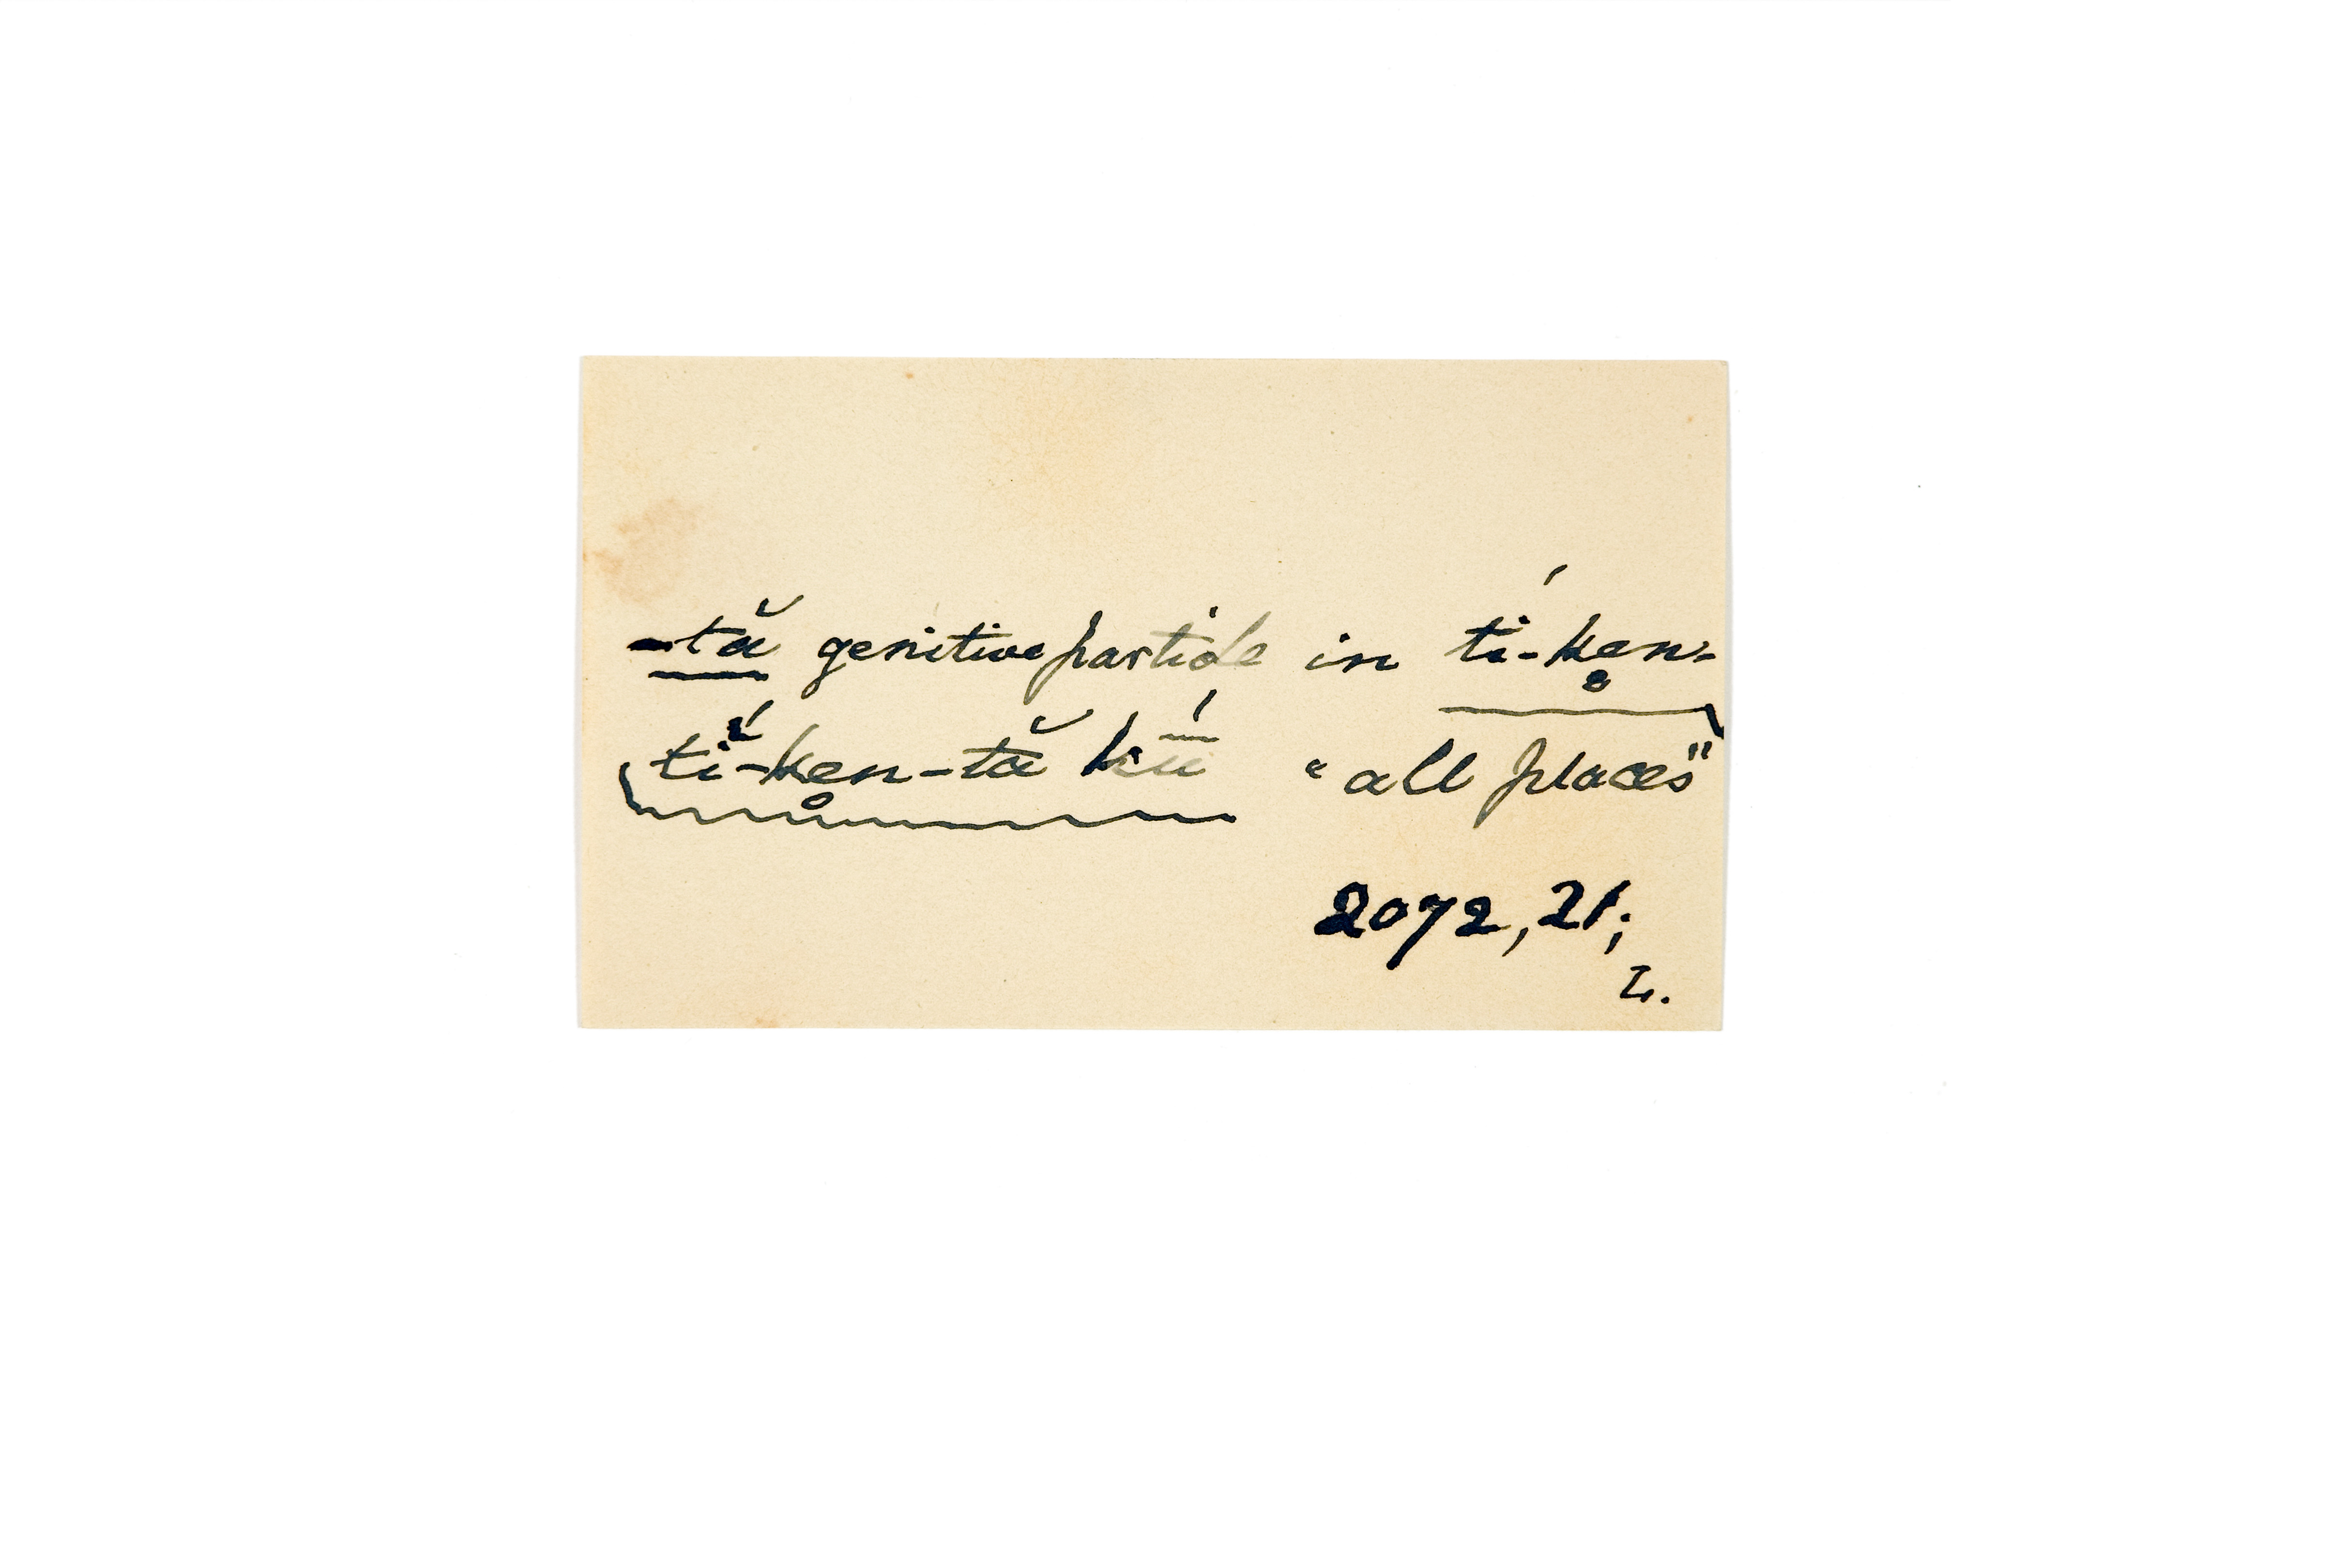 -tă genitive particle in ti-ḱen̥-
tí̯-ken̥-tă kǖ́ "all places"
2072, 21;
L.